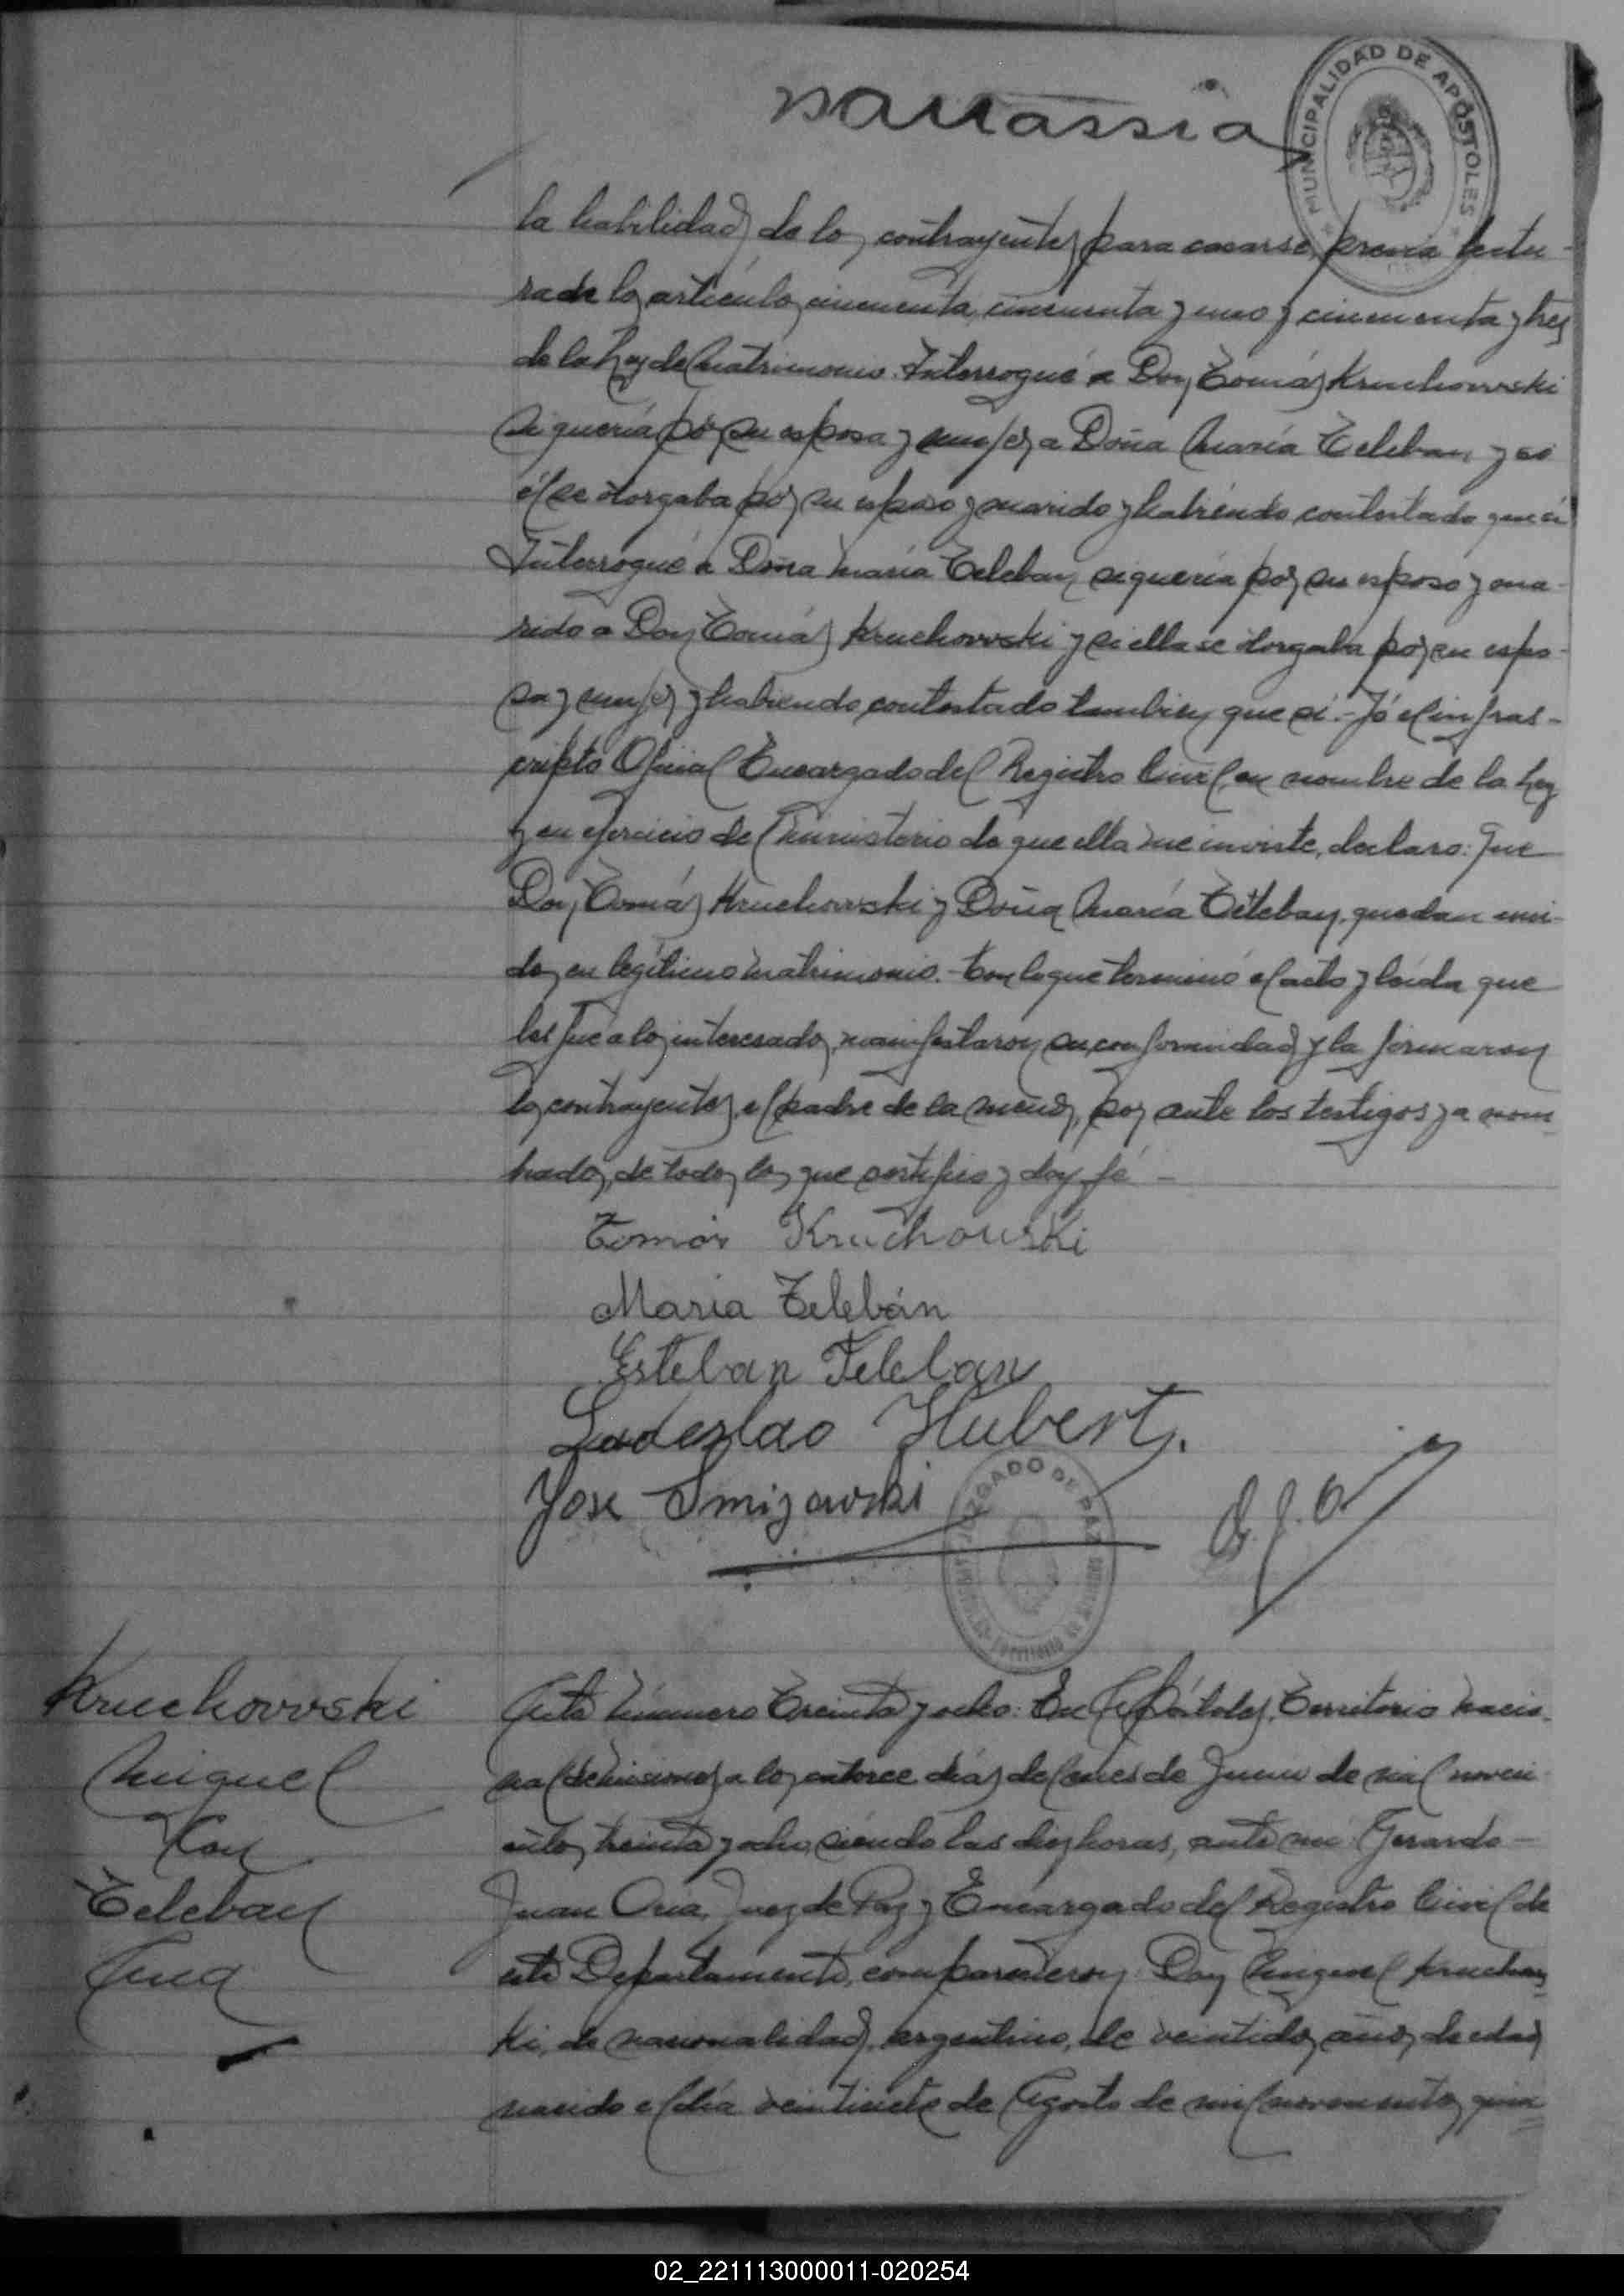 MUNICIPALIDAD DE APÓSTOLES
la habilidad de los contrayentes para casarse, previa lectu-
ra de los artículos cincuenta, cincuenta y uno y cincuenta y tres
de la Ley de Matrimonio. Interrogué a Don Tomás Kruchowski
si quería por su esposa y mujer a Doña María Teleban y si
él se otorgaba por su esposo y marido y habiendo contestado que sí
Interrogué a Doña María Teleban si quería por su esposo y ma-
rido a Don Tomás Kruchowski y si ella se otorgaba por su espo-
sa y mujer y habiendo contestado tambien que sí.- Yó el infras-
cripto Oficial Encargado del Registro Civil, en nombre de la Ley
y en ejercicio del ministerio de que ella me inviste, declaro: Que
Don Tomás Kruchowski y Doña María Teleban, quedan uni-
dos en legítimo matrimonio.- Con lo que terminó el acto y leída que
les fué a los interesados, manifestaron su conformidad y la firmaron
los contrayentes, el padre de la menor, por ante los testigos ya nom
brados, de todo lo que certifico y doy fé -
Tomás Kruchowski
María Telebán
Esteban Teleban
Ladeslao Hubert.
Jose Smizowski
JUZGADO DE PAZ
Kruchowski
Miguel
Con
Teleban
Ana
Acta Número Treinta y ocho: En Apóstoles, Territorio Nacio-
nal de Misiones, a los catorce días del mes de Junio de mil noveci
entos treinta y ocho, siendo las diez horas, ante mí Gerardo -
Juan Oria, Juez de Paz y Encargado del Registro Civil de
este Departamento, comparecieron: Don Miguel Kruchows
ki, de nacionalidad argentino, de veintidos años de edad
nacido el día veintisiete de Agosto de mil novecientos quin
02_221113000011-020254